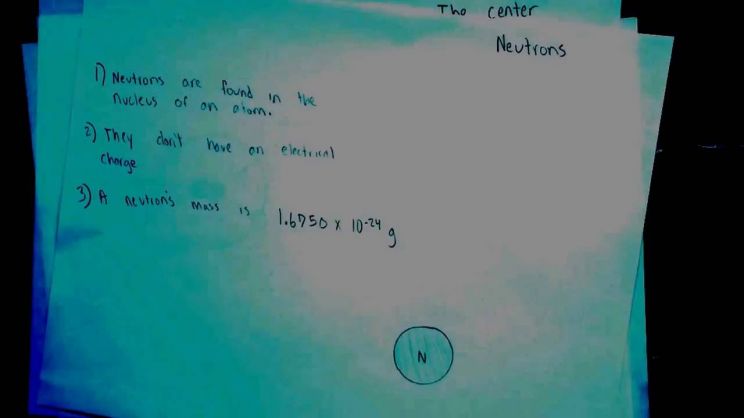 The center
Neutrons
1) Neutrons are found in the
nucleus of an atom.
2) They don't have an electrical
charge
3) A neutron's mass is 1.6750 x 10-24 g
N